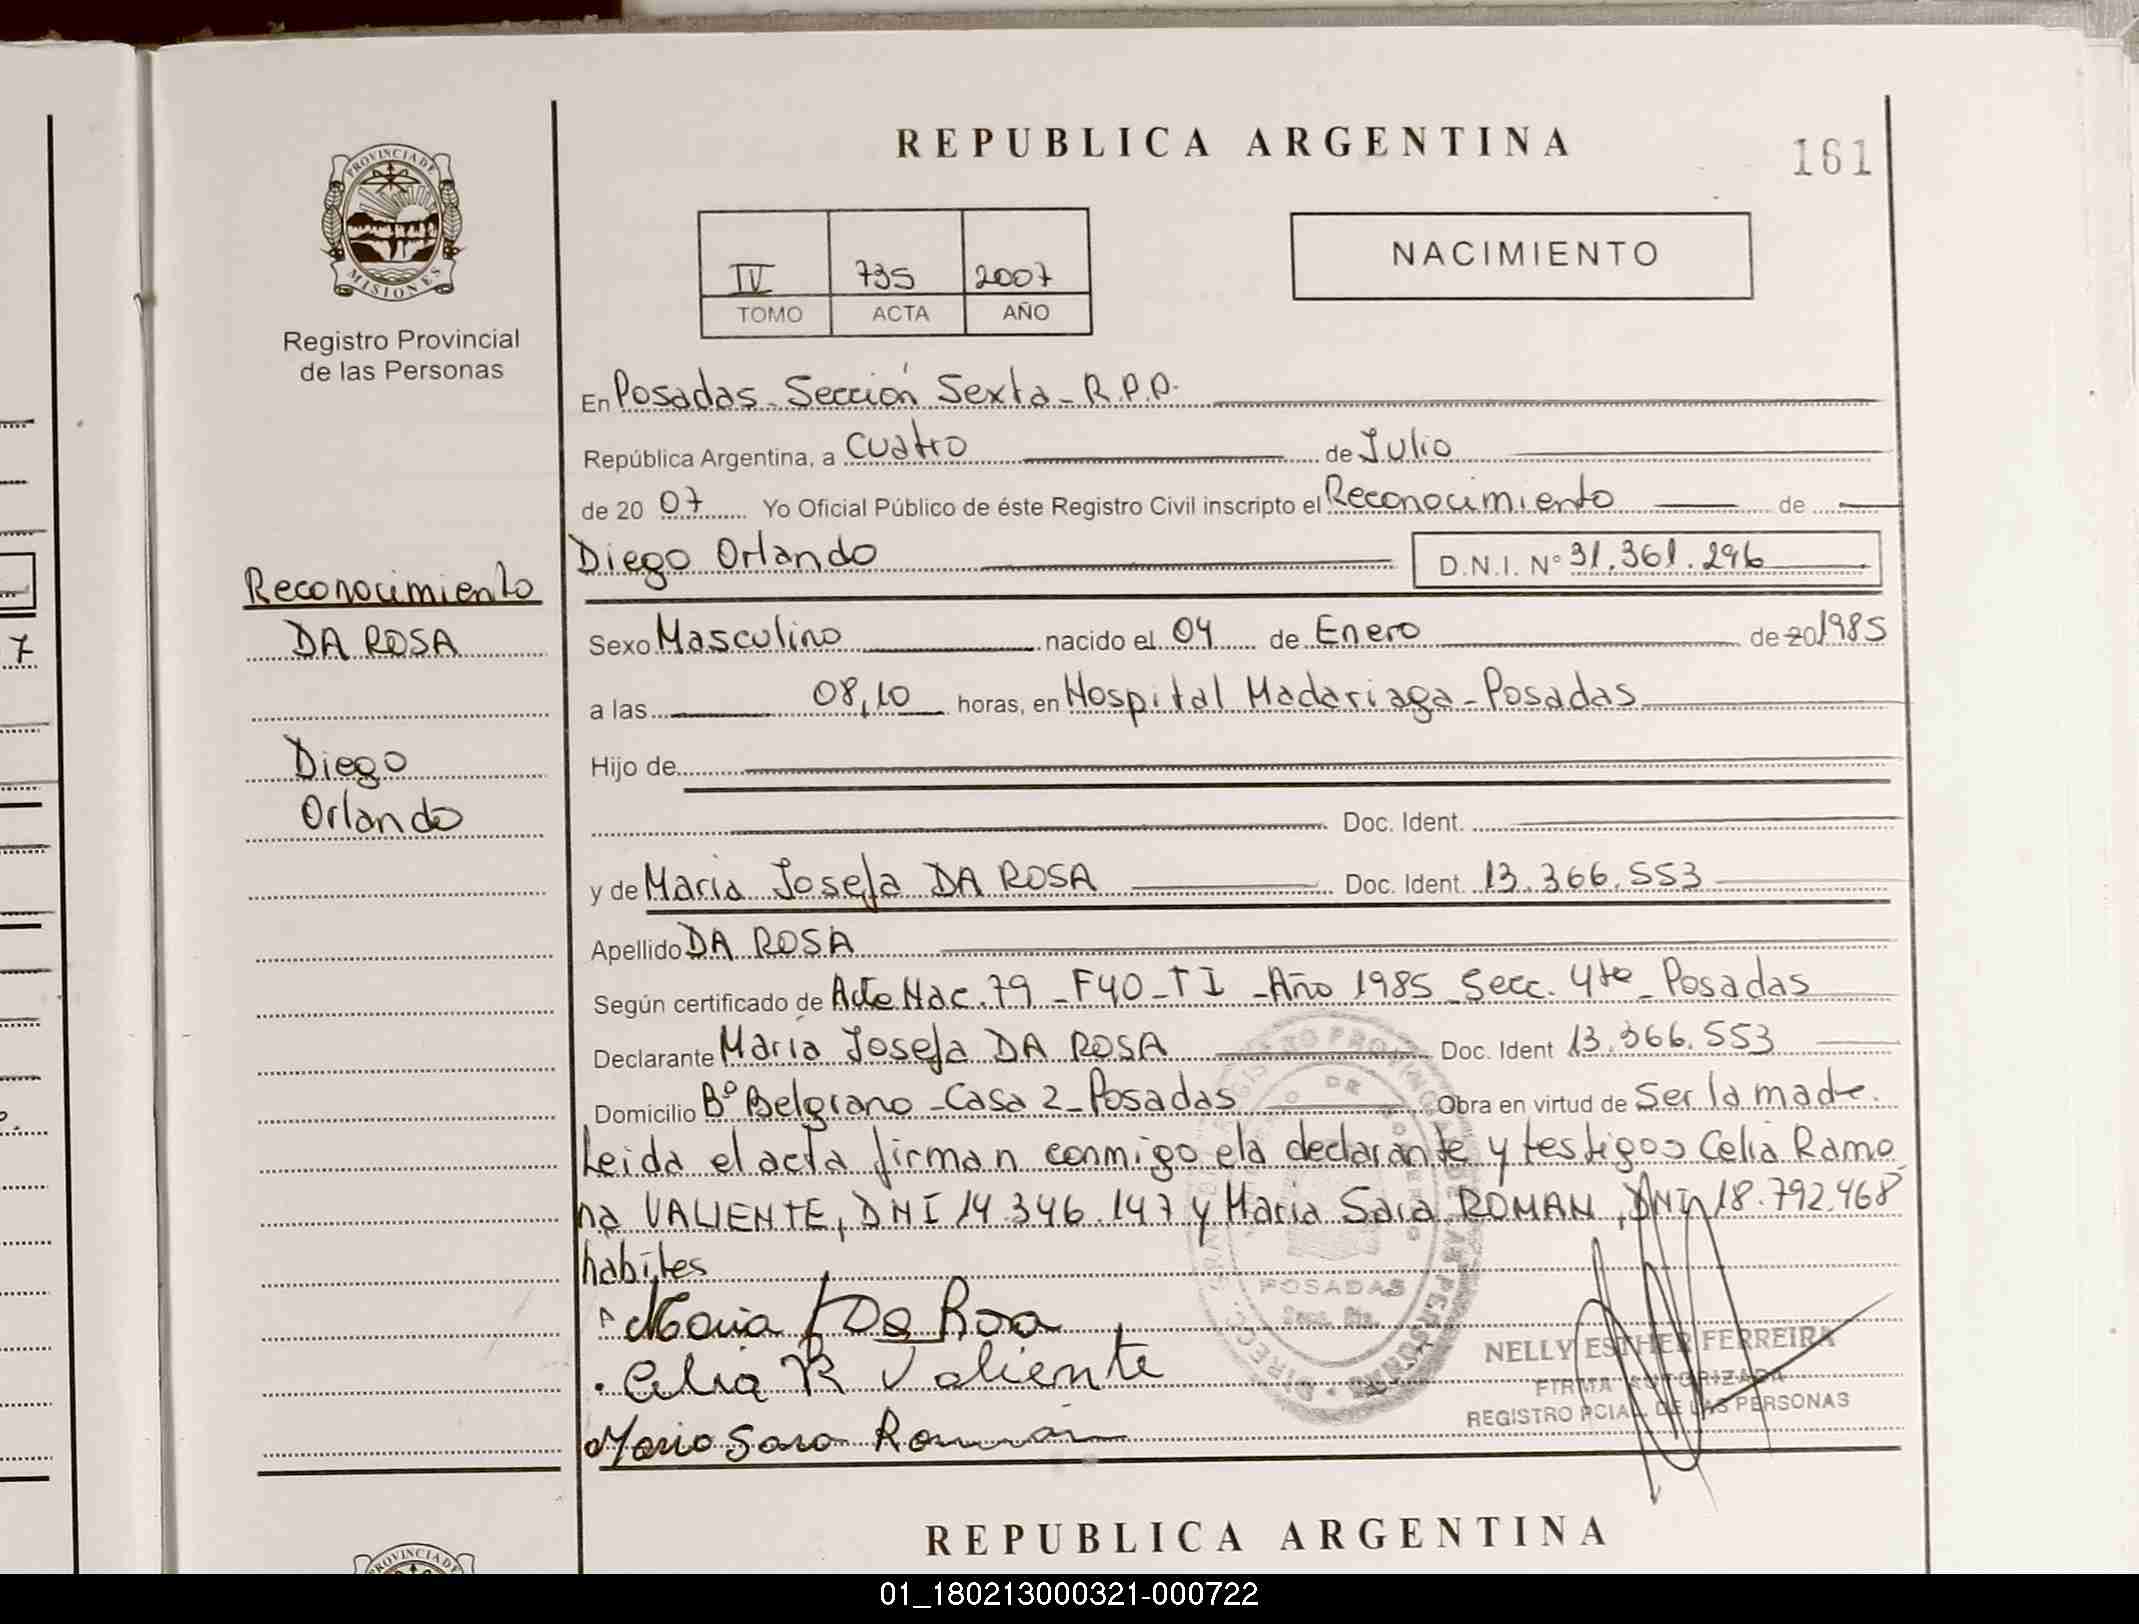 REPUBLICA ARGENTINA
161
PROVINCIA DE
MISIONES
Registro Provincial
de las Personas
IV 735 2007
TOMO ACTA AÑO
NACIMIENTO
En Posadas - Sección Sexta - R.P.P.
República Argentina, a Cuatro de Julio
de 2007 Yo Oficial Público de éste Registro Civil inscripto el Reconocimiento de
Diego Orlando D.N.I. Nº 31.361.296
Reconocimiento
DA ROSA
Diego
Orlando
7
Sexo Masculino nacido el 04 de Enero de 20 1985
a las 08,10 horas, en Hospital Madariaga - Posadas
Hijo de
Doc. Ident.
y de Maria Josefa DA ROSA Doc. Ident. 13.366.553
Apellido DA ROSA
Según certificado de Acta Nac. 79 - F40 - T I - Año 1985 Secc. 4ta - Posadas
Declarante María Josefa DA ROSA Doc. Ident 13.366.553
Domicilio Bº Belgrano - Casa 2 - Posadas Obra en virtud de Ser la madre.
Leida el acta firman conmigo el a declarante y testigos Celia Ramo
na VALIENTE, DNI 14.346.147 y Maria Sara ROMAN, DNI 18.792.468
hábiles
Maria J Da Rosa
Celia R Valiente
Maria Sara Roman
POSADAS
NELLY ESTHER FERREIRA
FIRMA AUTORIZADA
REGISTRO PCIAL. DE LAS PERSONAS
REPUBLICA ARGENTINA
PROVINCIA D
01_180213000321-000722